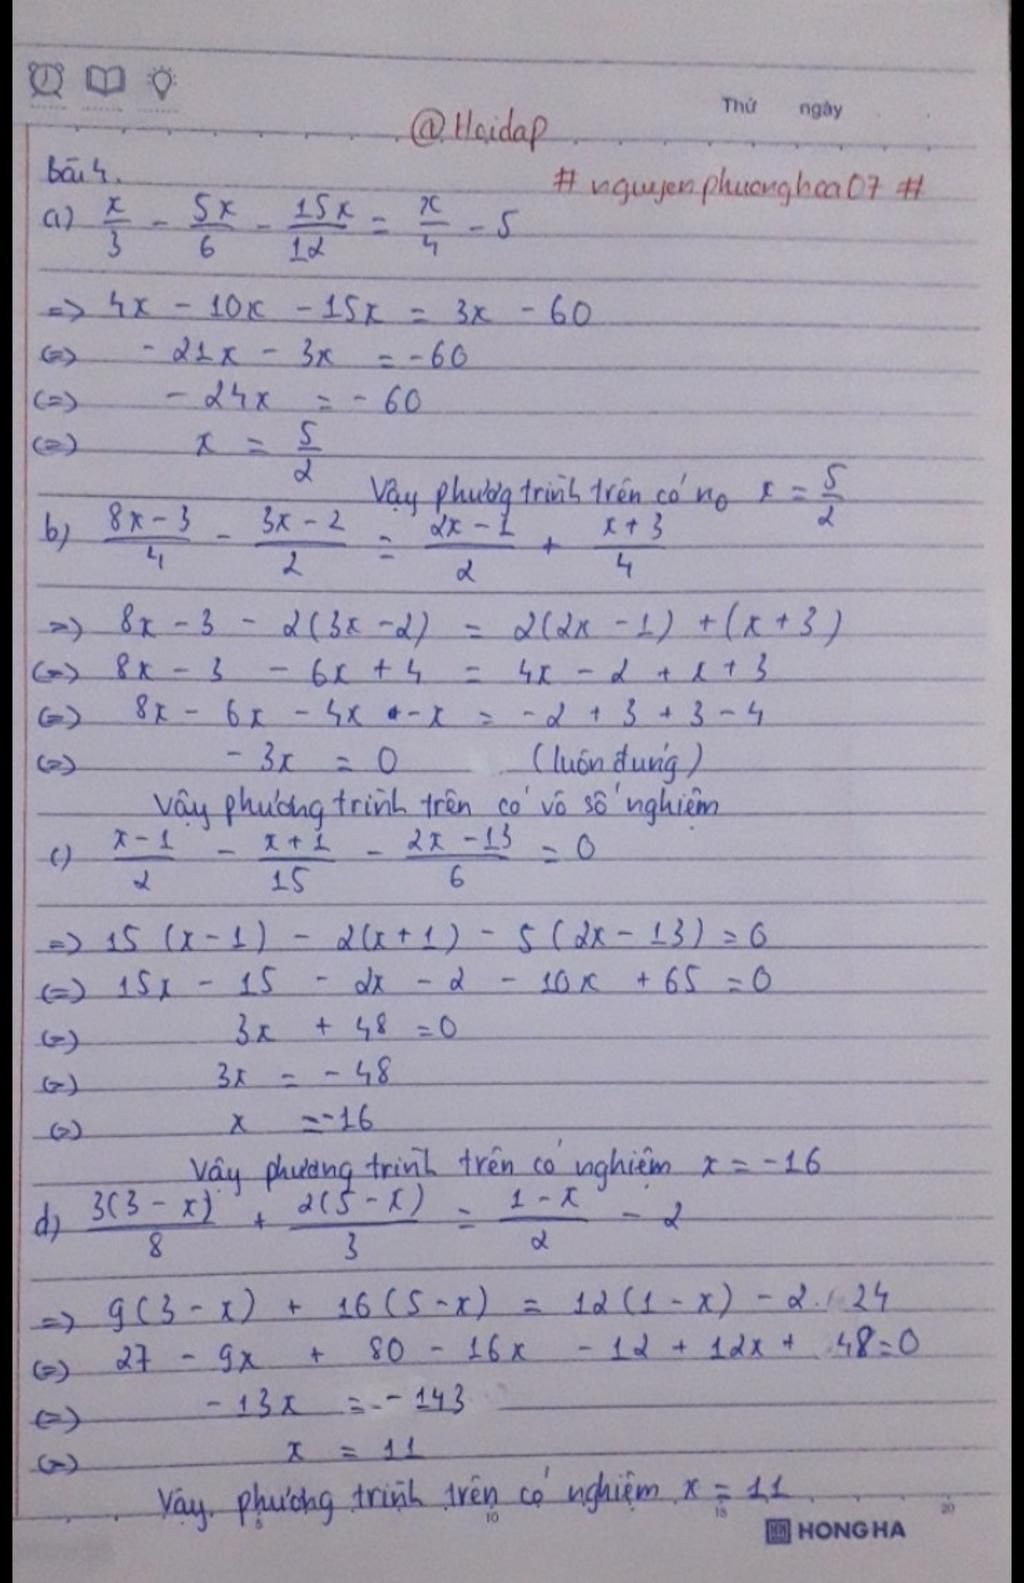 Thứ ngày
@Hoidap
bài 4.
# nguyenphuonghoa07 #
a) x/3 - 5x/6 - 15x/12 = x/4 - 5
=> 4x - 10x - 15x = 3x - 60
(=) - 21x - 3x = -60
(=) - 24x = - 60
(=) x = 5/2
Vậy phương trình trên có no x = 5/2
b) (8x - 3)/4 - (3x - 2)/2 = (2x - 1)/2 + (x + 3)/4
=) 8x - 3 - 2(3x - 2) = 2(2x - 1) + (x + 3)
(=) 8x - 3 - 6x + 4 = 4x - 2 + x + 3
(=) 8x - 6x - 4x - x = - 2 + 3 + 3 - 4
(=) - 3x = 0 (luôn đúng)
Vậy phương trình trên có vô số nghiệm
c) (x - 1)/2 - (x + 1)/15 - (2x - 13)/6 = 0
=) 15 (x - 1) - 2(x + 1) - 5 (2x - 13) = 0
(=) 15x - 15 - 2x - 2 - 10x + 65 = 0
(=) 3x + 48 = 0
(=) 3x = - 48
(=) x = -16
Vậy phương trình trên có nghiệm x = -16
d) 3(3 - x)/8 + 2(5 - x)/3 = (1 - x)/2 - 2
=) 9(3 - x) + 16(5 - x) = 12(1 - x) - 2. 24
(=) 27 - 9x + 80 - 16x - 12 + 12x + 48 = 0
(=) - 13x = - 143
(=) x = 11
Vậy phương trình trên có nghiệm x = 11
5 10 15 20
HONG HA